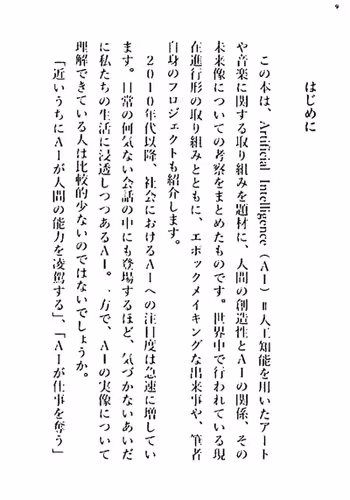 9
はじめに
この本は、Artificial Intelligence(AI)=人工知能を用いたアート
や音楽に関する取り組みを題材に、人間の創造性とAIの関係、その
未来像についての考察をまとめたものです。世界中で行われている現
在進行形の取り組みとともに、エポックメイキングな出来事や、筆者
自身のプロジェクトも紹介します。
2010年代以降、社会におけるAIへの注目度は急速に増してい
ます。日常の何気ない会話の中にも登場するほど、気づかないあいだ
に私たちの生活に浸透しつつあるAI。一方で、AIの実像について
理解できている人は比較的少ないのではないでしょうか。
「近いうちにAIが人間の能力を凌駕する」、「AIが仕事を奪う」